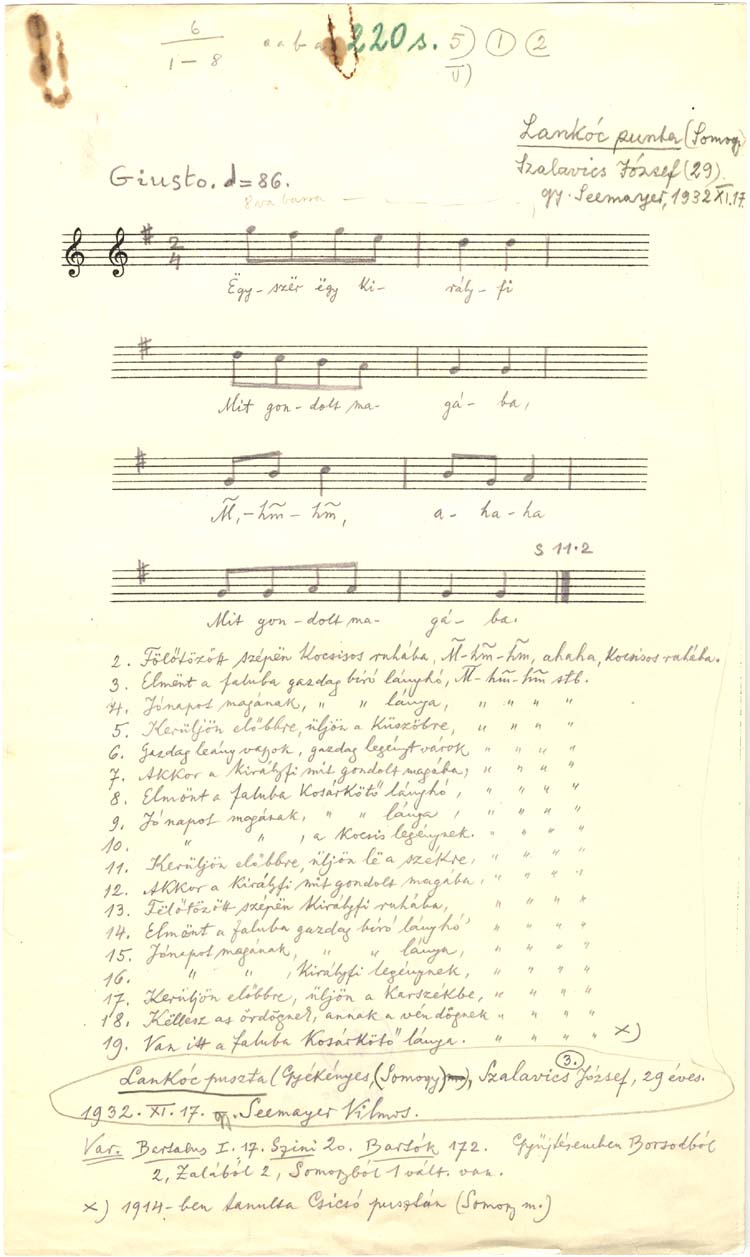 6
1 – 8
a a b a
220 s.
5) 1 2
V)
Lankóc puszta (Somogy)
Szalavics József (29)
gy. Seemayer, 1932 XI. 17.
Giusto. = 86.
8va bassa
2
4
Ëgy – szër ëgy Ki – rály – fi
Mit gon – dolt ma – gá – ba,
M̃, – hm̃ – hm̃, a – ha – ha
S 11·2
Mit gon – dolt ma – gá – ba.
2. Fölőtözött szépen Kocsisos ruhába, M̃ – hm̃ – hm̃, ahaha, Kocsisos ruhába.
3. Elmënt a faluba gazdag bíró lányhó, M̃ – hm̃ – hm̃ stb.
4. Jónapot magának, " " lánya, " " " "
5. Kerüljön előbbre, üljön a Küszöbre, " " " "
6. Gazdag leány vagyok, gazdag legényt várok " " " "
7. Akkor a Királyfi mit gondolt magába, " " " "
8. Elmönt a faluba Kosárkötő lányhó, " " " "
9. Jónapot magának, " " lánya, " " " "
10. " " , a Kocsis legénynek. " " " "
11. Kerüljön előbbre, üljön lë a székre, " " " "
12. Akkor a Királyfi mit gondolt magába, " " " "
13. Felőtözött szépën Királyfi ruhába, " " " "
14. Elmënt a faluba gazdag bíró lányhó " " " "
15. Jónapot magának, " " lánya, " " " "
16. " " , Királyfi legénynek, " " " "
17. Kerüljön előbbre, üljön a Karszékbe, " " " "
18. Këllesz az ördögnek, annak a vén dögnek " " " "
19. Van itt a faluba Kosárkötő lánya. " " " " x)
3.
Lankóc puszta (Gyékényes, (Somogy) Szalavics József, 29 éves.
1932. XI. 17. gy. Seemayer Vilmos.
Var. Bartalus I. 17. Szini 20. Bartók 172. Gyűjtésemben Borsodból
2, Zalából 2, Somogyból 1 vált. van.
x) 1914-ben tanulta Csicsó pusztán (Somogy m.)